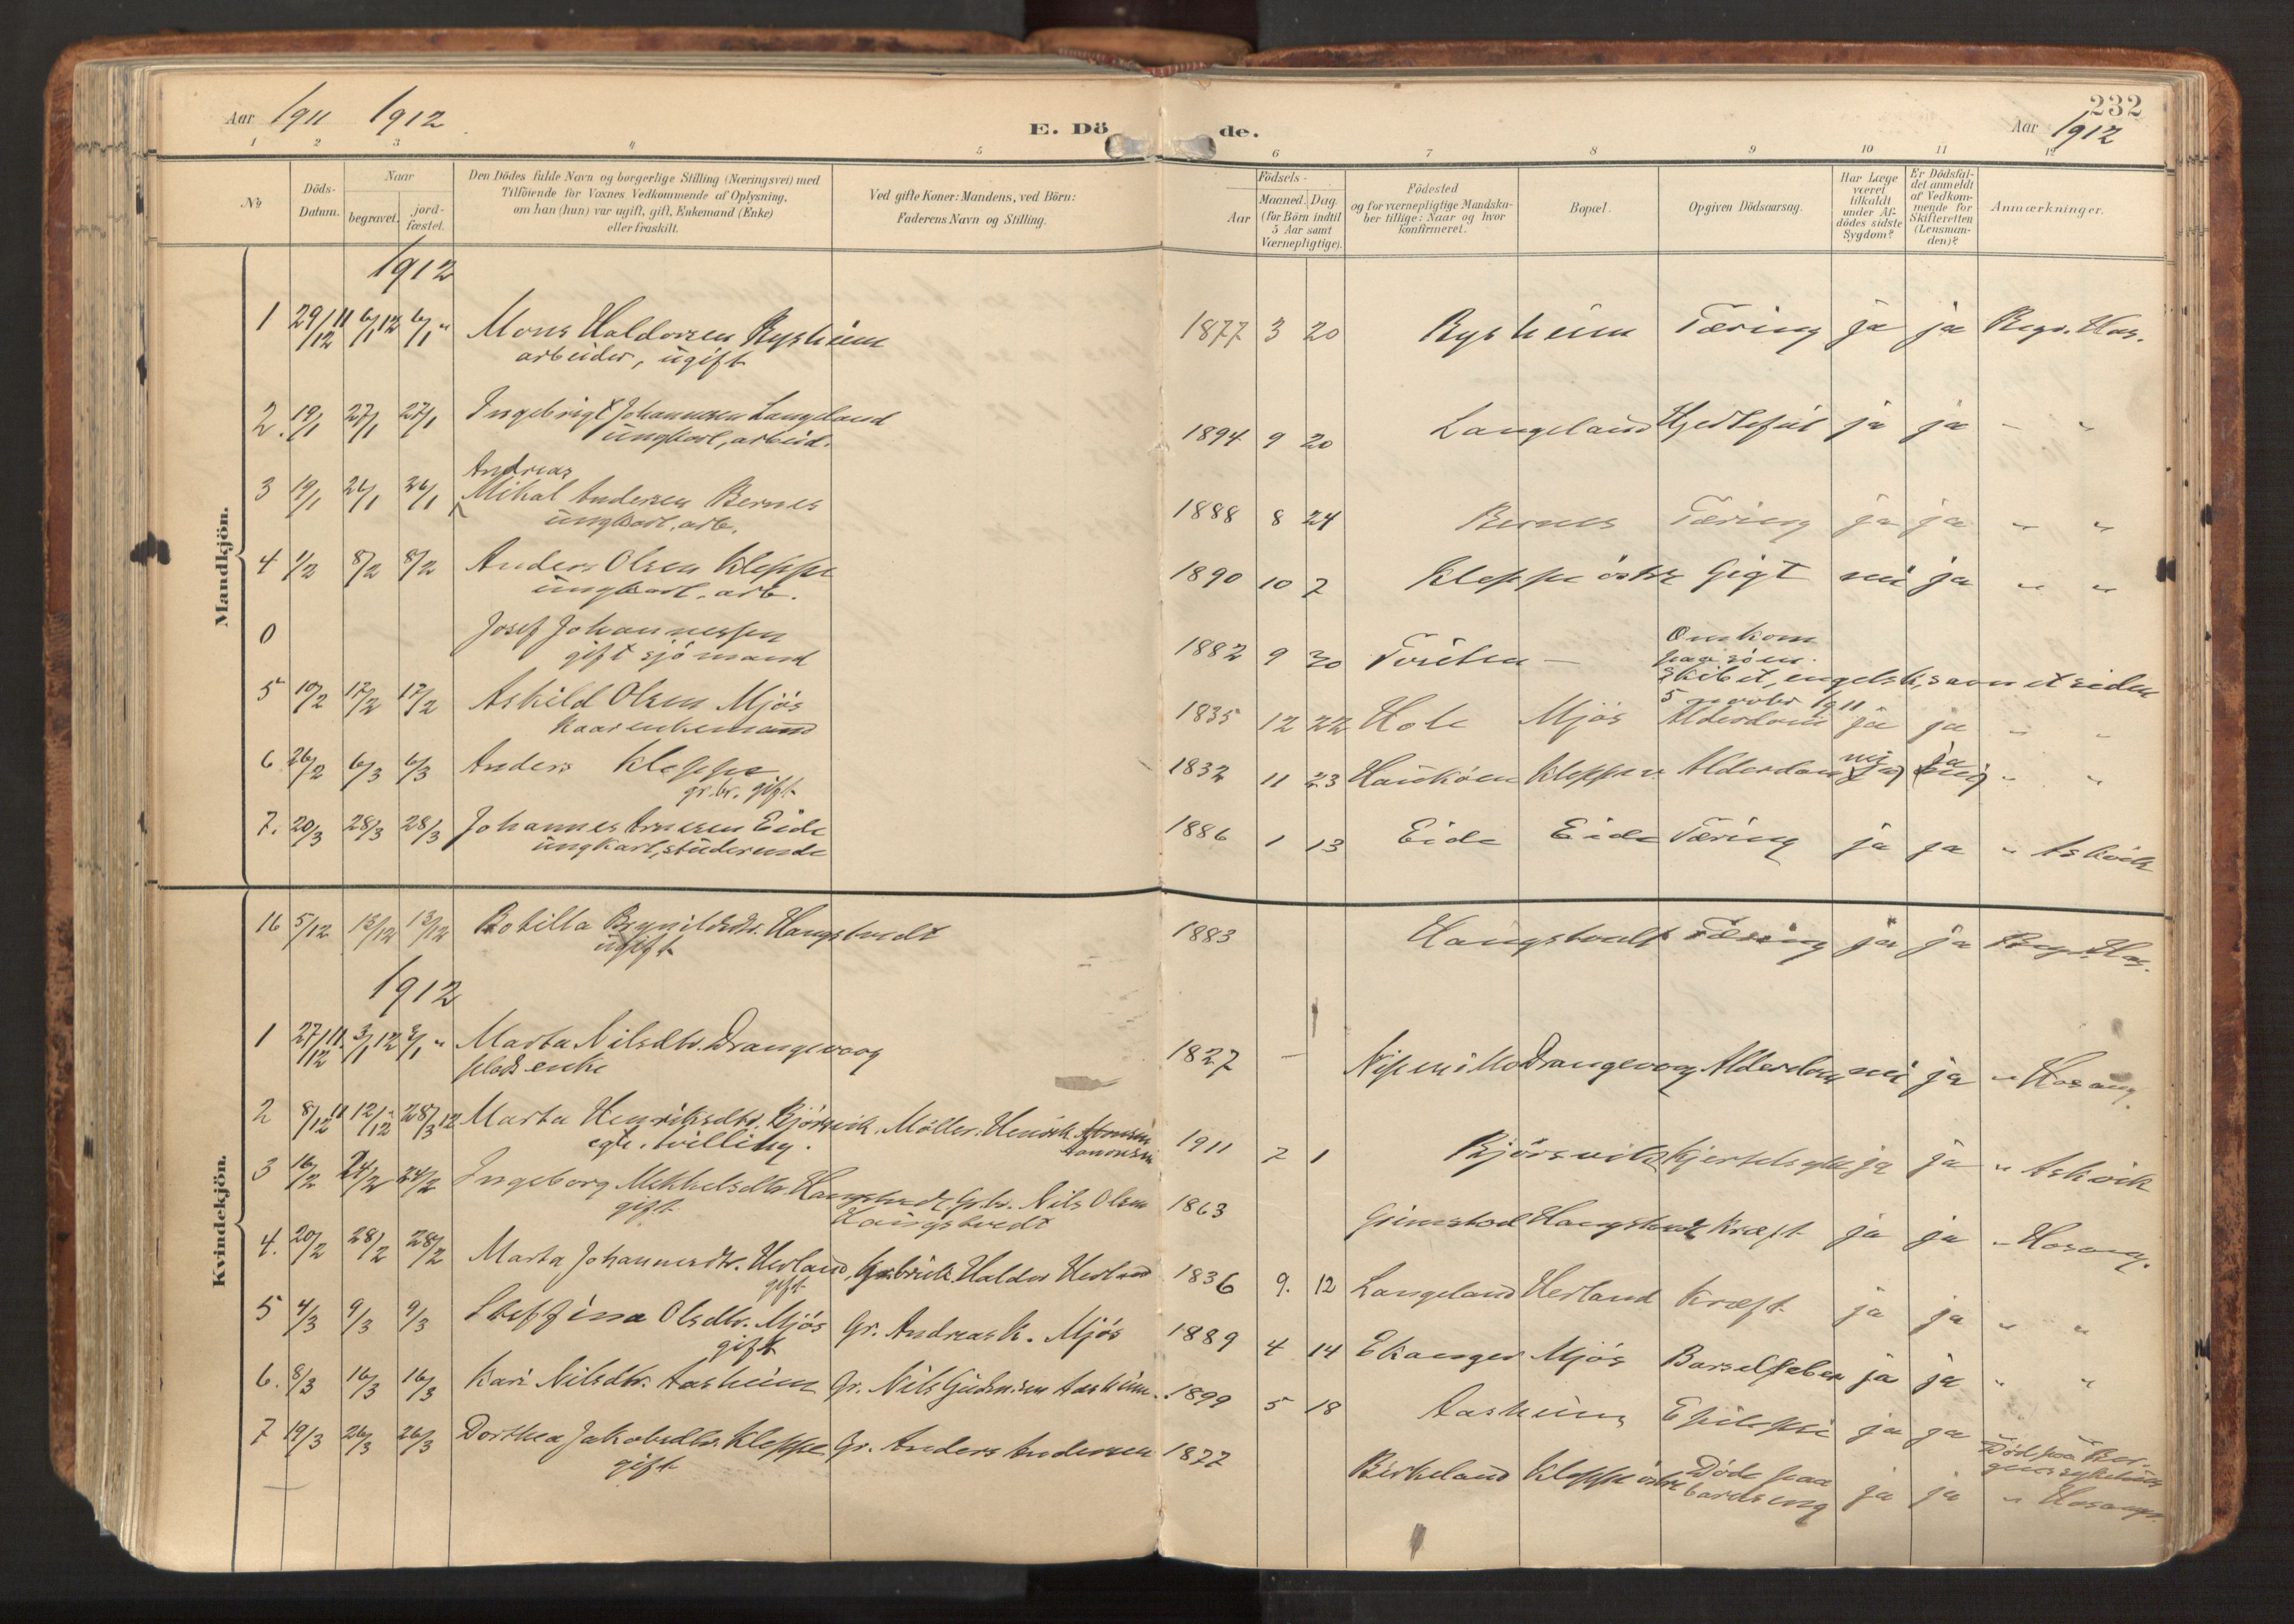 232
Aar 1911 1912 E. Döde. Aar 1912
1 2 3 4 5 6 7 8 9 10 11 12
No
Döds-Datum.
Naar
begravet.
jord-fæstet.
Den Dödes fulde Navn og borgerlige Stilling (Næringsvei) med
Tilföiende for Voxnes Vedkommende af Oplysning,
om han (hun) var ugift, gift, Enkemand (Enke)
eller fraskilt.
Ved gifte Koner: Mandens, ved Börn:
Faderens Navn og Stilling.
Födsels-
Aar
Maaned. Dag.
(for Börn indtil
5 Aar samt
Værnepligtige).
Födested
og for værnepligtige Mandska-
ber tillige: Naar og hvor
konfirmeret.
Bopæl.
Opgiven Dödsaarsag.
Har Læge
været
tilkaldt
under Af-
dödes sidste
Sygdom?
Er Dödsfal-
det anmeldt
af Vedkom-
mende for
Skifteretten
(Lensman-
den)?
Anmærkninger.
Mandkjön.
1912
1 29/12 11 6/1 12 6/1 " Mons Haldorsen Rysheim 1877 3 20 Rysheim Tæring ja ja Begr. Hos.
arbeider, ugift
2. 19/1 27/1 27/1 Ingebrigt Johannesen Langeland 1894 9 20 Langeland Hjertefeil ja ja " "
ungkarl, arbeid.
Andreas
3 19/1 26/1 26/1 Mikal Andersen Bernes 1888 8 24 Bernes Tæring ja ja " "
ungkarl, arb.
4 1/2 8/2 8/2 Anders Olsen Kleppe 1890 10 7 Kleppe östre Gigt nei ja " "
ungkarl, arb.
0 Josef Johannessen 1882 9 30 - Omkom
gift sjömand paa sjöen.
skibet, engelsk, savnet siden
5 novbr 1911
5 10/2 17/2 17/2 Askild Olsen Mjös 1835 12 22 Hole Mjös Alderdom ja ja " "
kaarenkemand
6 26/2 6/3 6/3 Anders Kleppe 1832 11 23 Kleppe Alderdom nei ja " "
gr.br. gift
7. 20/3 28/3 28/3 Johannes Arnesen Eide 1886 1 13 Eide Eide Tæring ja ja " Askvik
ungkarl, studerende
Kvindekjön.
16 5/12 13/12 13/12 Botilla Brynildsdtr. Haugstvedt 1883 Haugstvedt Tæring ja ja Begr. Hos.
ugift
1912
1 27/12 11. 3/1 12 3/1 " Marta Nilsdtr. Drangevaag 1827 - Drangevaag Alderdom nei ja " Hosang.
pladsenke
2 8/12 11 12/12 28/3 12 Marta Henriksdtr. Bjørsvik. Möller. Henrik 1911 7 1 Bjørsvik ja ja " Askvik
egte. tvilling.
3 16/2 24/2 24/2 Ingeborg Mikkelsdtr. Haugstvedt Gbr. Nils Olsen 1863 Grimstad Haugstvedt Kræft ja ja " Hosang.
gift Haugstvedt
4. 20/2 28/2 28/2 Marta Johannesdtr. Herland, Gr.bruk. Haldor Herland 1836 9. 12 Langeland Herland Kræft. ja ja " "
gift
5 4/3 9/3 9/3 Steffina Olsdtr. Mjös Gr. Andreas K. Mjös 1889 4 14 Ekanger Mjös Barselfeber ja ja " "
gift
6. 8/3 16/3 16/3 Kari Nilsdtr. Aasheim Gr. Nils Aasheim. 1899 5 18 Aasheim Epilepsi ja ja
7 19/3 26/3 26/3 Dorthea Jakobsdtr. Kleppe Gr. Anders Andersen 1877 Birkeland Kleppe östre Döde paa ja ja Död paa Ber-
gift barseng gens sykehus
" Hosanger.